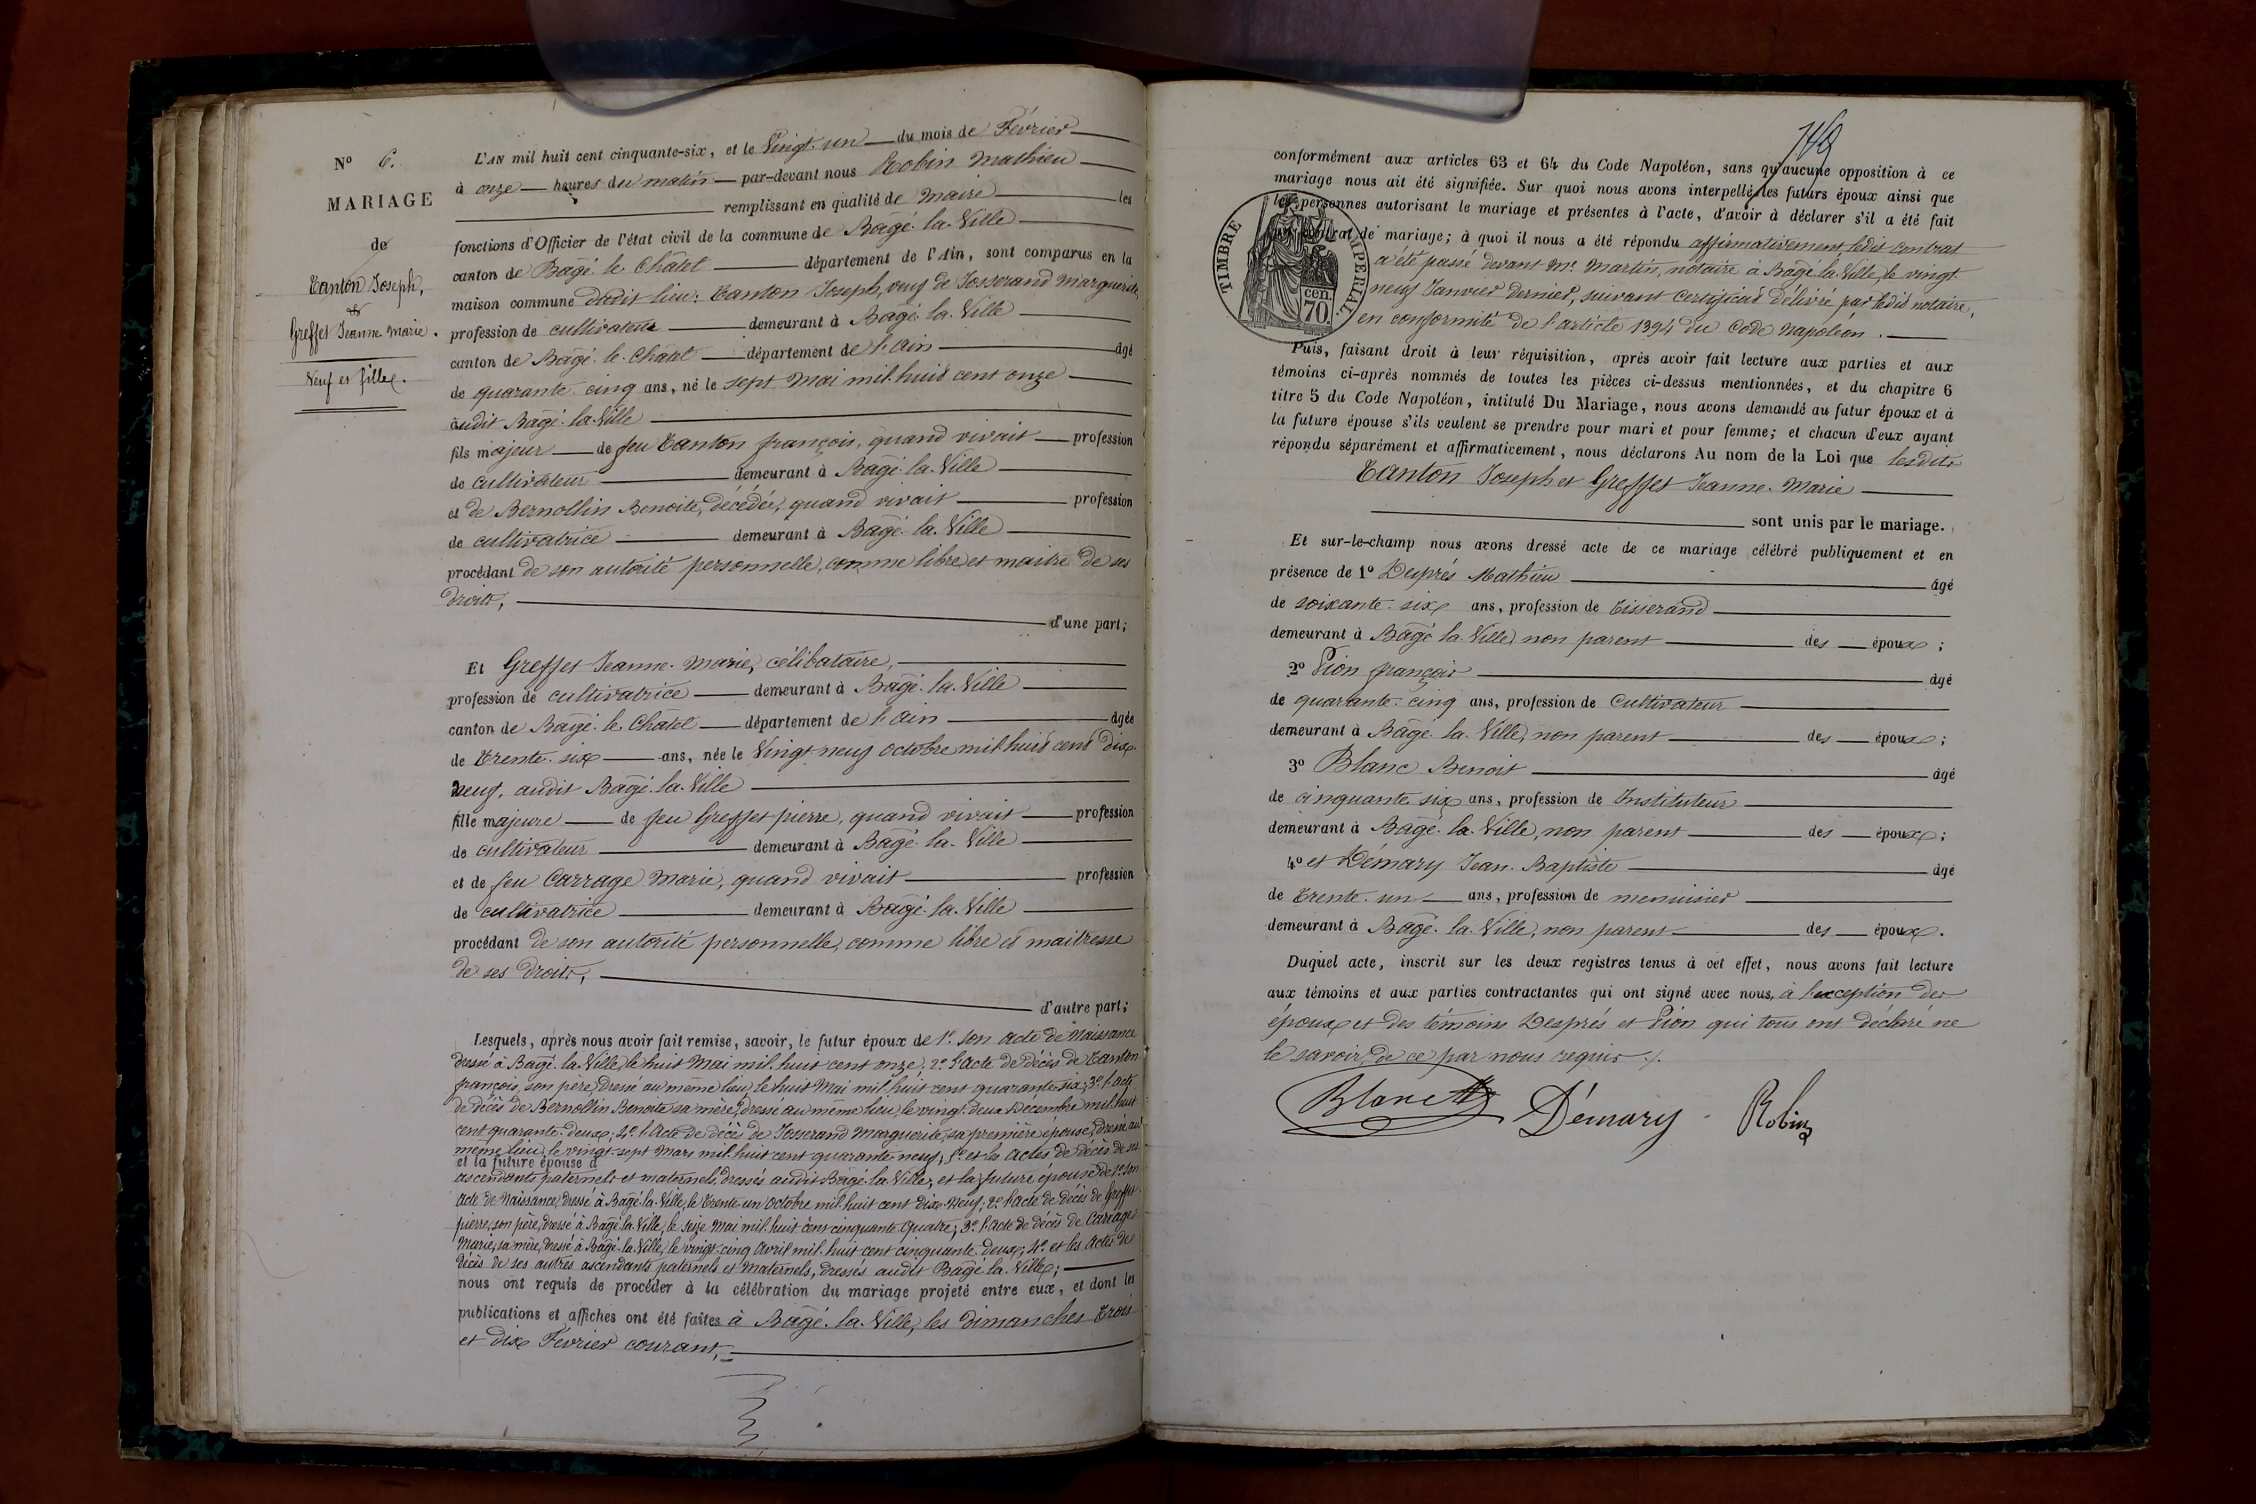 N° 6.
MARIAGE
de
Tanton Joseph,
et
Greffet Jeanne Marie.
Veuf et fille.
L'AN mil huit cent cinquante-six, et le Vingt-un du mois de Février
à onze heures du matin par-devant nous Robin Mathieu
remplissant en qualité de Maire les
fonctions d'Officier de l'état civil de la commune de Bâgé-la-Ville
canton de Bâgé-le-Châtel département de l'Ain, sont comparus en la
maison commune dudit lieu: Tanton Joseph, veuf de Josserand Marguerite,
profession de cultivateur demeurant à Bâgé-la-Ville
canton de Bâgé-le-Châtel département de l'Ain âgé
de quarante-cinq ans, né le sept Mai mil-huit cent onze
audit Bâgé-la-Ville
fils majeur de feu Tanton françois, quand vivait profession
de cultivateur demeurant à Bâgé-la-Ville
et de Bernollin Benoite, décédée, quand vivait profession
de cultivatrice demeurant à Bâgé-la-Ville
procédant de son autorité personnelle, comme libre et maitre de ses
droits, d'une part;
Et Greffet Jeanne-Marie, célibataire,
profession de cultivatrice demeurant à Bâgé-la-Ville
canton de Bâgé-le-Châtel département de l'Ain âgée
de trente-six ans, née le Vingt-neuf octobre mil-huit cent dix-
neuf, audit Bâgé-la-Ville
fille majeure de feu Greffet pierre, quand vivait profession
de cultivateur demeurant à Bâgé-la-Ville
et de feu Carrage Marie, quand vivait profession
de cultivatrice demeurant à Bâgé-la-Ville
procédant de son autorité personnelle, comme libre et maitresse
de ses droits, d'autre part;
Lesquels, après nous avoir fait remise, savoir, le futur époux de 1° son acte de Naissance
dressé à Bâgé-la-Ville, le huit Mai mil-huit cent onze; 2° l'Acte de décès de Tanton
françois, son père, dressé au même lieu, le huit Mai mil-huit cent quarante-six; 3° l'acte
de décès de Bernollin Benoite sa mère, dressé au même lieu, le vingt-deux Décembre mil-huit
cent quarante-deux; 4° l'Acte de décès de Josserand Marguerite, sa première épouse, dressé au
même lieu, le vingt-sept Mars mil-huit cent quarante-neuf; 5° et les Actes de décès de ses
et la future épouse d
ascendants paternels et maternels, dressés audit Bâgé-la-Ville; et la future épouse de 1° son
Acte de Naissance, dressé à Bâgé-la-Ville, le trente-un Octobre mil-huit cent dix-Neuf; 2° l'Acte de décès de Greffet
pierre, son père, dressé à Bâgé-la-Ville, le seize Mai mil-huit cent cinquante-Quatre; 3° l'Acte de décès de Carrage
Marie, sa mère, dressé à Bâgé-la-Ville, le vingt-cinq Avril mil-huit cent cinquante-deux; 4° et les Actes de
décès de ses autres ascendants paternels et maternels, dressés audit Bâgé-la-Ville;
nous ont requis de procéder à la célébration du mariage projeté entre eux, et dont les
publications et affiches ont été faites à Bâgé-la-Ville, les dimanches trois
et dix Février courant,
conformément aux articles 63 et 64 du Code Napoléon, sans qu'aucune opposition à ce
mariage nous ait été signifiée. Sur quoi nous avons interpellé les futurs époux ainsi que
les personnes autorisant le mariage et présentes à l'acte, d'avoir à déclarer s'il a été fait
un contrat de mariage; à quoi il nous a été répondu affirmativement, ledit contrat
a été passé devant Mr. Martin, notaire à Bâgé-la-Ville, le vingt-
neuf Janvier dernier, suivant certificat délivré par ledit notaire,
en conformité de l'article 1394 du Code Napoléon.
TIMBRE IMPERIAL
70 cen.
Puis, faisant droit à leur réquisition, après avoir fait lecture aux parties et aux
témoins ci-après nommés de toutes les pièces ci-dessus mentionnées, et du chapitre 6
titre 5 du Code Napoléon, intitulé Du Mariage, nous avons demandé au futur époux et à
la future épouse s'ils veulent se prendre pour mari et pour femme; et chacun d'eux ayant
répondu séparément et affirmativement, nous déclarons Au nom de la Loi que lesdits
Tanton Joseph et Greffet Jeanne-Marie
sont unis par le mariage.
Et sur-le-champ nous avons dressé acte de ce mariage célébré publiquement et en
présence de 1° Després Mathieu âgé
de soixante-six ans, profession de tisserand
demeurant à Bâgé-la-Ville, non parent des époux;
2° Pion françois âgé
de quarante-cinq ans, profession de Cultivateur
demeurant à Bâgé-la-Ville, non parent des époux;
3° Blanc Benoit âgé
de cinquante-six ans, profession de Instituteur
demeurant à Bâgé-la-Ville, non parent des époux;
4° et Démary Jean-Baptiste âgé
de trente-un ans, profession de menuisier
demeurant à Bâgé-la-Ville, non parent des époux.
Duquel acte, inscrit sur les deux registres tenus à cet effet, nous avons fait lecture
aux témoins et aux parties contractantes qui ont signé avec nous, à l'exception des
époux et des témoins Després et Pion qui tous ont déclaré ne
le savoir, de ce par nous requis.
Blanc Démary Robin